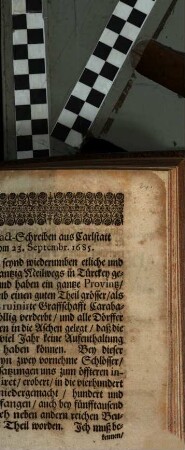 act-Schreiben aus Carlstatt
om 23. Septembr. 1685.
seynd wiederumben etliche und
antzig Meilwegs in Türckey ge-
und haben ein gantze Provintz/
nd einen guten Theil grösser/als
ruinirte Graffschafft Caraba-
öllig verderbt/ und alle Dörffer
en in die Aschen gelegt / daß die
viel Jahr keine Auffenthaltung
haben können. Bey dieser
yn zwey vornehme Schlösser/
satzungen uns zum öffteren in-
iret/ erobert/ in die vierhundert
niedergemacht/ hundert und
fangen/ auch bey fünfftausend
ch neben andern reichen Beu-
Theil worden. Ich muß be-
kennen/